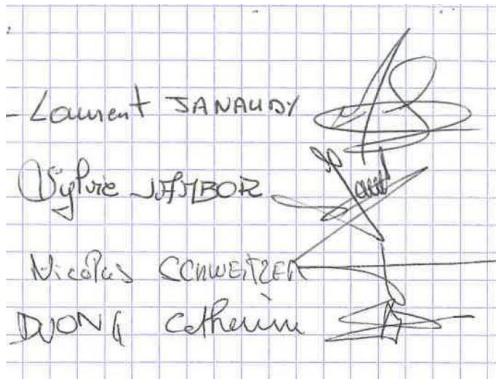 - Laurent JANAUDY
Sylvie JAMBOR
Nicolas SCHWEITZER
DUONG Catherine